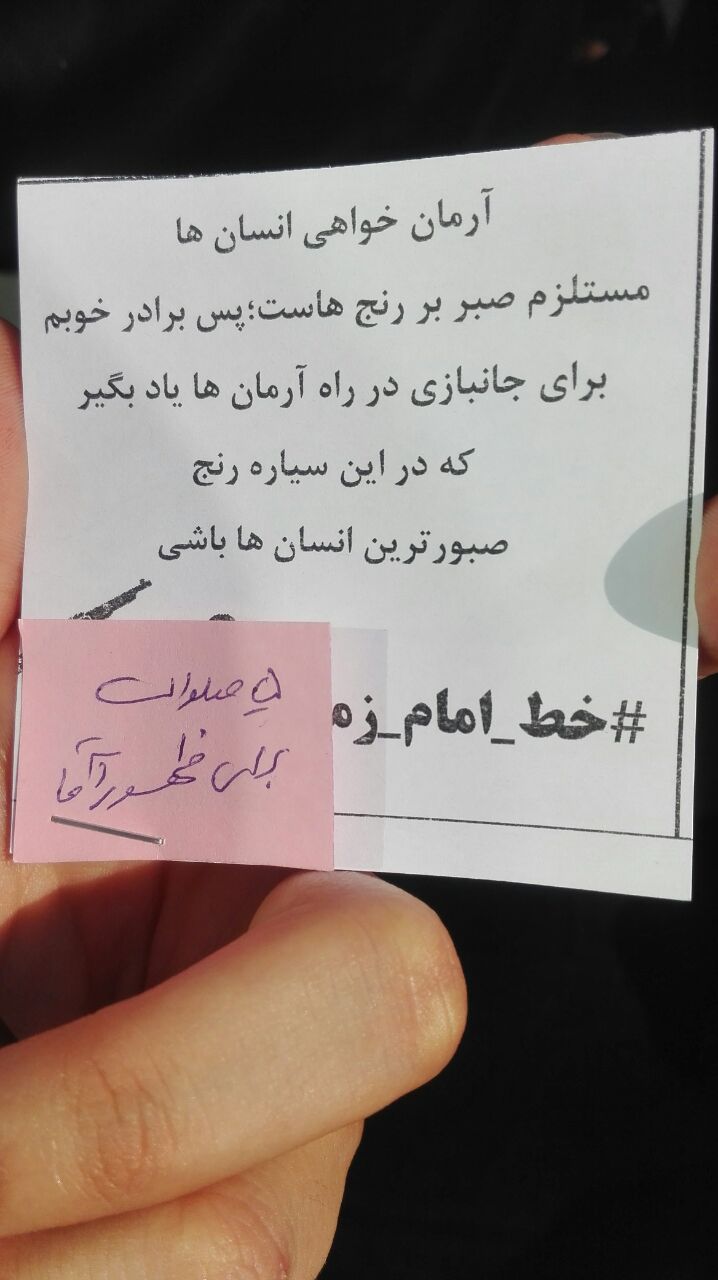 آرمان خواهی انسان ها
مستلزم صبر بر رنج هاست؛پس برادر خوبم
برای جانبازی در راه آرمان ها یاد بگیر
که در این سیاره رنج
صبورترین انسان ها باشی
#خط_امام_زم
۵ صلوات
برای ظهور آقا